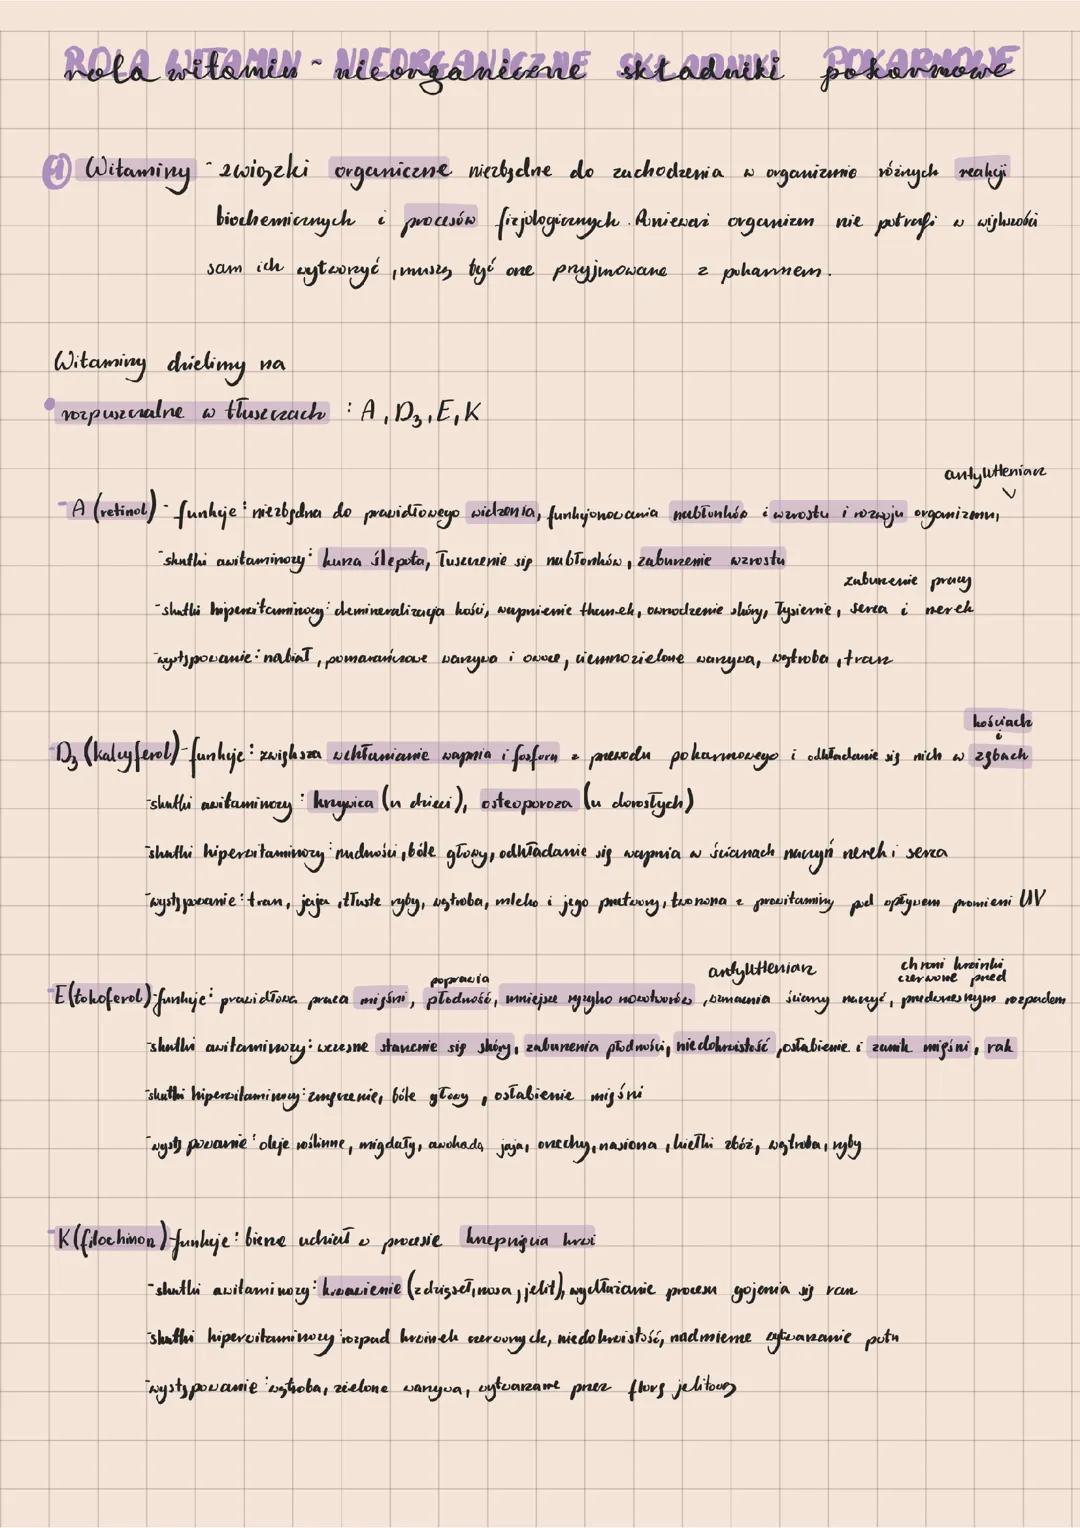 ROLA WITAMIN - NIEORGANICZNE SKŁADNIKI POKARMOWE
rola witamin - nieorganiczne składniki pokarmowe
1 Witaminy - związki organiczne niezbędne do zachodzenia w organizmie różnych reakcji
biochemicznych i procesów fizjologicznych. Ponieważ organizm nie potrafi w większości
sam ich wytworzyć, muszą być one przyjmowane z pokarmem.
Witaminy dzielimy na
rozpuszczalne w tłuszczach : A, D3, E, K
antyutleniacz
- A (retinol) - funkcje: niezbędna do prawidłowego widzenia, funkcjonowania nabłonków i wzrostu i rozwoju organizmu,
- skutki awitaminozy: kurza ślepota, łuszczenie się nabłonków, zaburzenie wzrostu
zaburzenie pracy
- skutki hiperwitaminozy: demineralizacja kości, wapnienie tkanek, owrzodzenie skóry, łysienie, serca i nerek
- występowanie: nabiał, pomarańczowe warzywa i owoce, ciemnozielone warzywa, wątroba, tran
kościach
i
- D3 (kalcyferol) - funkcje: zwiększa wchłanianie wapnia i fosforu z przewodu pokarmowego i odkładanie się nich w zębach
- skutki awitaminozy: krzywica (u dzieci), osteoporoza (u dorosłych)
- skutki hiperwitaminozy: nudności, bóle głowy, odkładanie się wapnia w ścianach naczyń nerek i serca
- występowanie: tran, jaja, tłuste ryby, wątroba, mleko i jego przetwory, tworzona z prowitaminy pod wpływem promieni UV
poprawia
antyutleniacz
chroni krwinki
czerwone przed
- E (tokoferol) - funkcje: prawidłowa praca mięśni, płodność, mniejsze ryzyko nowotworów, wzmacnia ściany naczyń, przedwczesnym rozpadem
- skutki awitaminozy: wczesne starzenie się skóry, zaburzenia płodności, niedokrwistość, osłabienie i zanik mięśni, rak
- skutki hiperwitaminozy: zmęczenie, bóle głowy, osłabienie mięśni
- występowanie: oleje roślinne, migdały, awokado, jaja, orzechy, nasiona, kiełki zbóż, wątroba, ryby
- K (filochinon) - funkcje: bierze udział w procesie krzepnięcia krwi
- skutki awitaminozy: krwawienie (z dziąseł, nosa, jelit), wydłużanie procesu gojenia się ran
- skutki hiperwitaminozy: rozpad krwinek czerwonych, niedokrwistość, nadmierne wytwarzanie potu
- występowanie: wątroba, zielone warzywa, wytwarzane przez florę jelitową